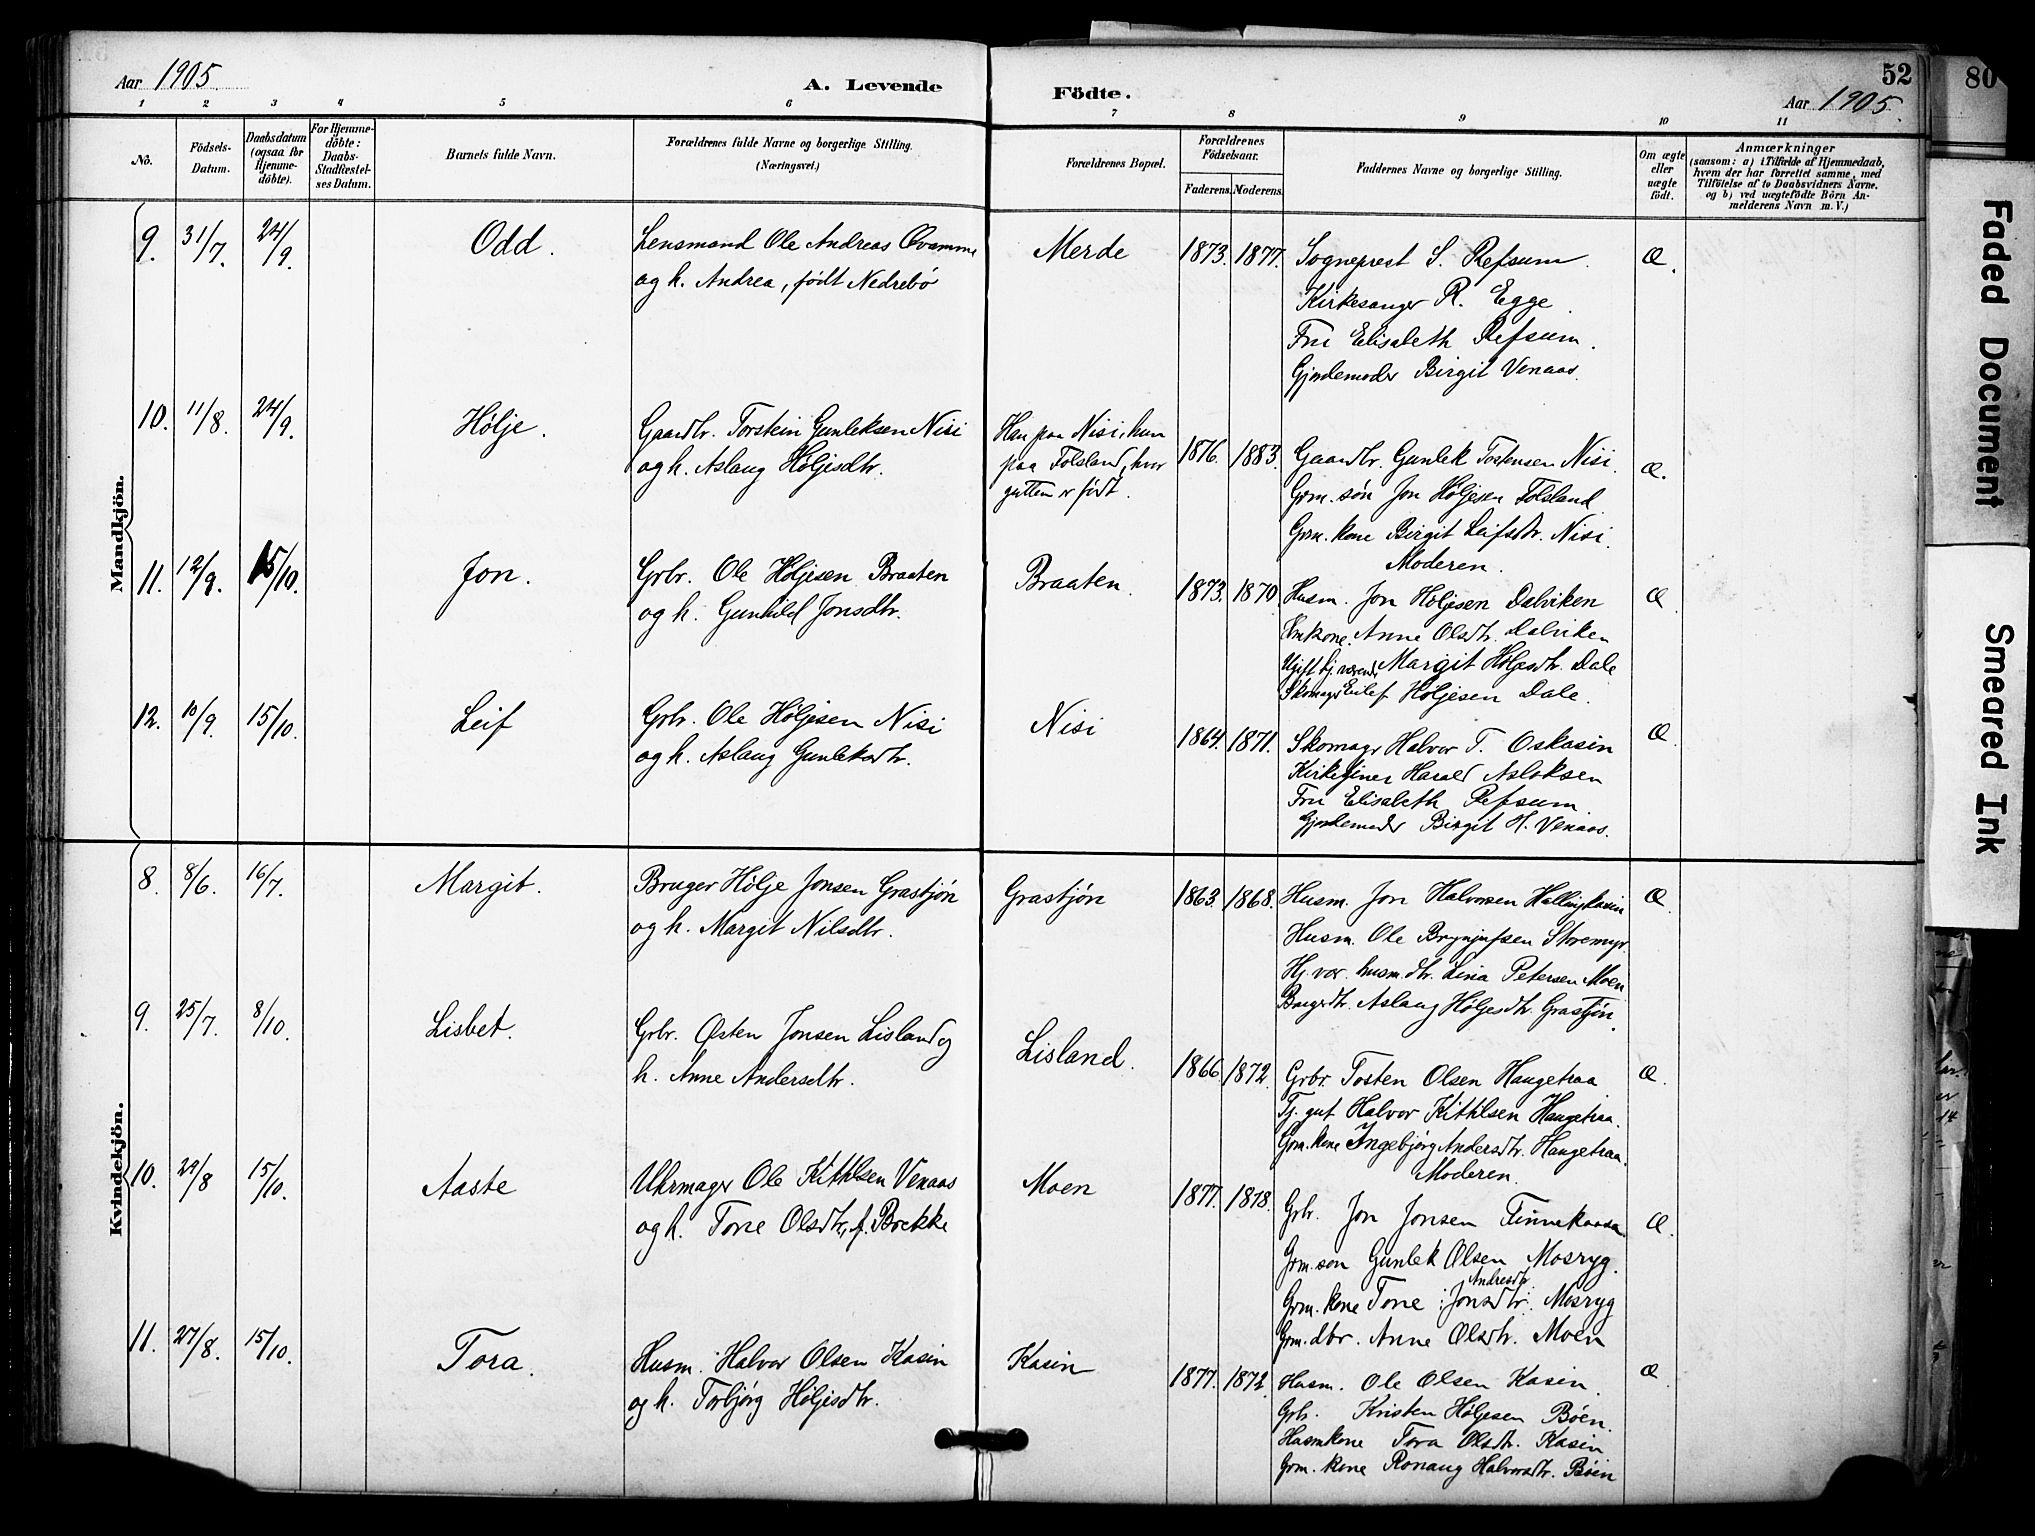 Aar 1905.
A. Levende
Födte.
52
Aar 1905.
80
1 2 3 4 5 6 7 8 9 10 11
No.
Födsels-Datum.
Daabsdatum (ogsaa for Hjemme-döbte).
For Hjemme-döbte: Daabs-Stadfæstel-ses Datum.
Barnets fulde Navn.
Forældrenes fulde Navne og borgerlige Stilling.
(Næringsvei.)
Forældrenes Bopæl.
Forældrenes Födselsaar.
Faderens. Moderens.
Faddernes Navne og borgerlige Stilling.
Om ægte eller uægte født.
Anmærkninger
(saasom: a) i Tilfælde af Hjemmedaab,
hvem der har forrettet samme, med
Tilföielse af to Daabsvidners Navne,
og b) ved uægtefödte Börn An-
melderens Navn m. V.)
Mandkjön.
9. 31/7. 24/9. Odd. Lensmand Ole Andreas Qvamme Merde 1873. 1877. Sogneprest S. Refsum. Æ.
og h. Andrea, født Nedrebö
Kirkesanger R. Egge.
Fru Elisabeth Refsum.
Gjordemoder Birgit Venaas.
10. 11/8. 24/9. Hølje. Gaardbr. Torstein Gunleksen Nisi
og h. Aslaug Høljesdtr.
Han paa Nisi, hun
paa Folsland, hvor
gutten er født.
1876. 1883. Gaardbr. Gunlek Tostensen Nisi. Æ.
Grm. søn Jon Høljesen Folsland
Grm. kone Birgit Leifsdtr. Nisi.
Moderen.
11. 12/9. 15/10. Jon. Grbr. Ole Høljesen Braaten
og h. Gunhild Jonsdtr.
Braaten. 1873. 1870. Husm. Jon Høljesen Dalviken Æ
Hmkone. Anne Olsdtr. Dalviken
Ugift hj. værende Margit Høljesdtr. Dale
Skomager Eilef Høljesen Dale.
12. 10/9. 15/10. Leif Grbr. Ole Høljesen Nisi
og h. Aslaug Gunleksdtr.
Nisi 1864. 1871. Skomagr Halvor T. Oskasin Æ
Kirketjener Harald Aslaksen
Fru Elisabeth Refsum.
Gjordemoder Birgit H. Venaas.
Kvindekjön.
8. 8/6. 16/7. Margit. Bruger Hølje Jonsen Grastjøn
og h. Margit Nilsdtr.
Grastjøn 1863. 1868. Husm. Jon Halvorsen Hallingkasin Æ.
Husm. Ole Brynjufsen Storemyr
Hj. vær. husm. dtr. Lina Petersen Moen
Brugerdtr. Aslaug Høljesdtr. Grastjøn.
9. 25/7. 8/10. Lisbet. Grbr. Østen Jonsen Lisland og
h. Anne Andersdtr.
Lisland. 1866. 1872. Grbr. Tosten Olsen Haugetraa Æ.
Tj. gut Halvor Kithlsen Haugetraa.
Grm. kone Ingebjørg Andersdtr. Haugetraa.
Moderen.
10. 24/8 15/10. Aaste Uhrmager Ole Kithlsen Venaas
og h. Tone Olsdtr, f. Brekke
Moen 1877. 1878. Grbr. Jon Jonsen Finnekaasa Æ.
Grm. søn Gunlek Olsen Mosryg.
Andresdtr
Grm. kone Tone Jonsdtr. Mosryg
Grm. dtr. Anne Olsdtr. Moen
11. 27/8. 15/10. Tora. Husm. Halvor Olsen Kasin
og h. Torbjørg Høljesdtr.
Kasin 1877. 1872. Husm. Ole Olsen Kasin. Æ.
Grbr. Kristen Høljesen Bøen.
Husmkone Tora Olsdtr. Kasin
Grm. kone Ronaug Halvorsdtr. Bøen
Faded Document
Smeared Ink